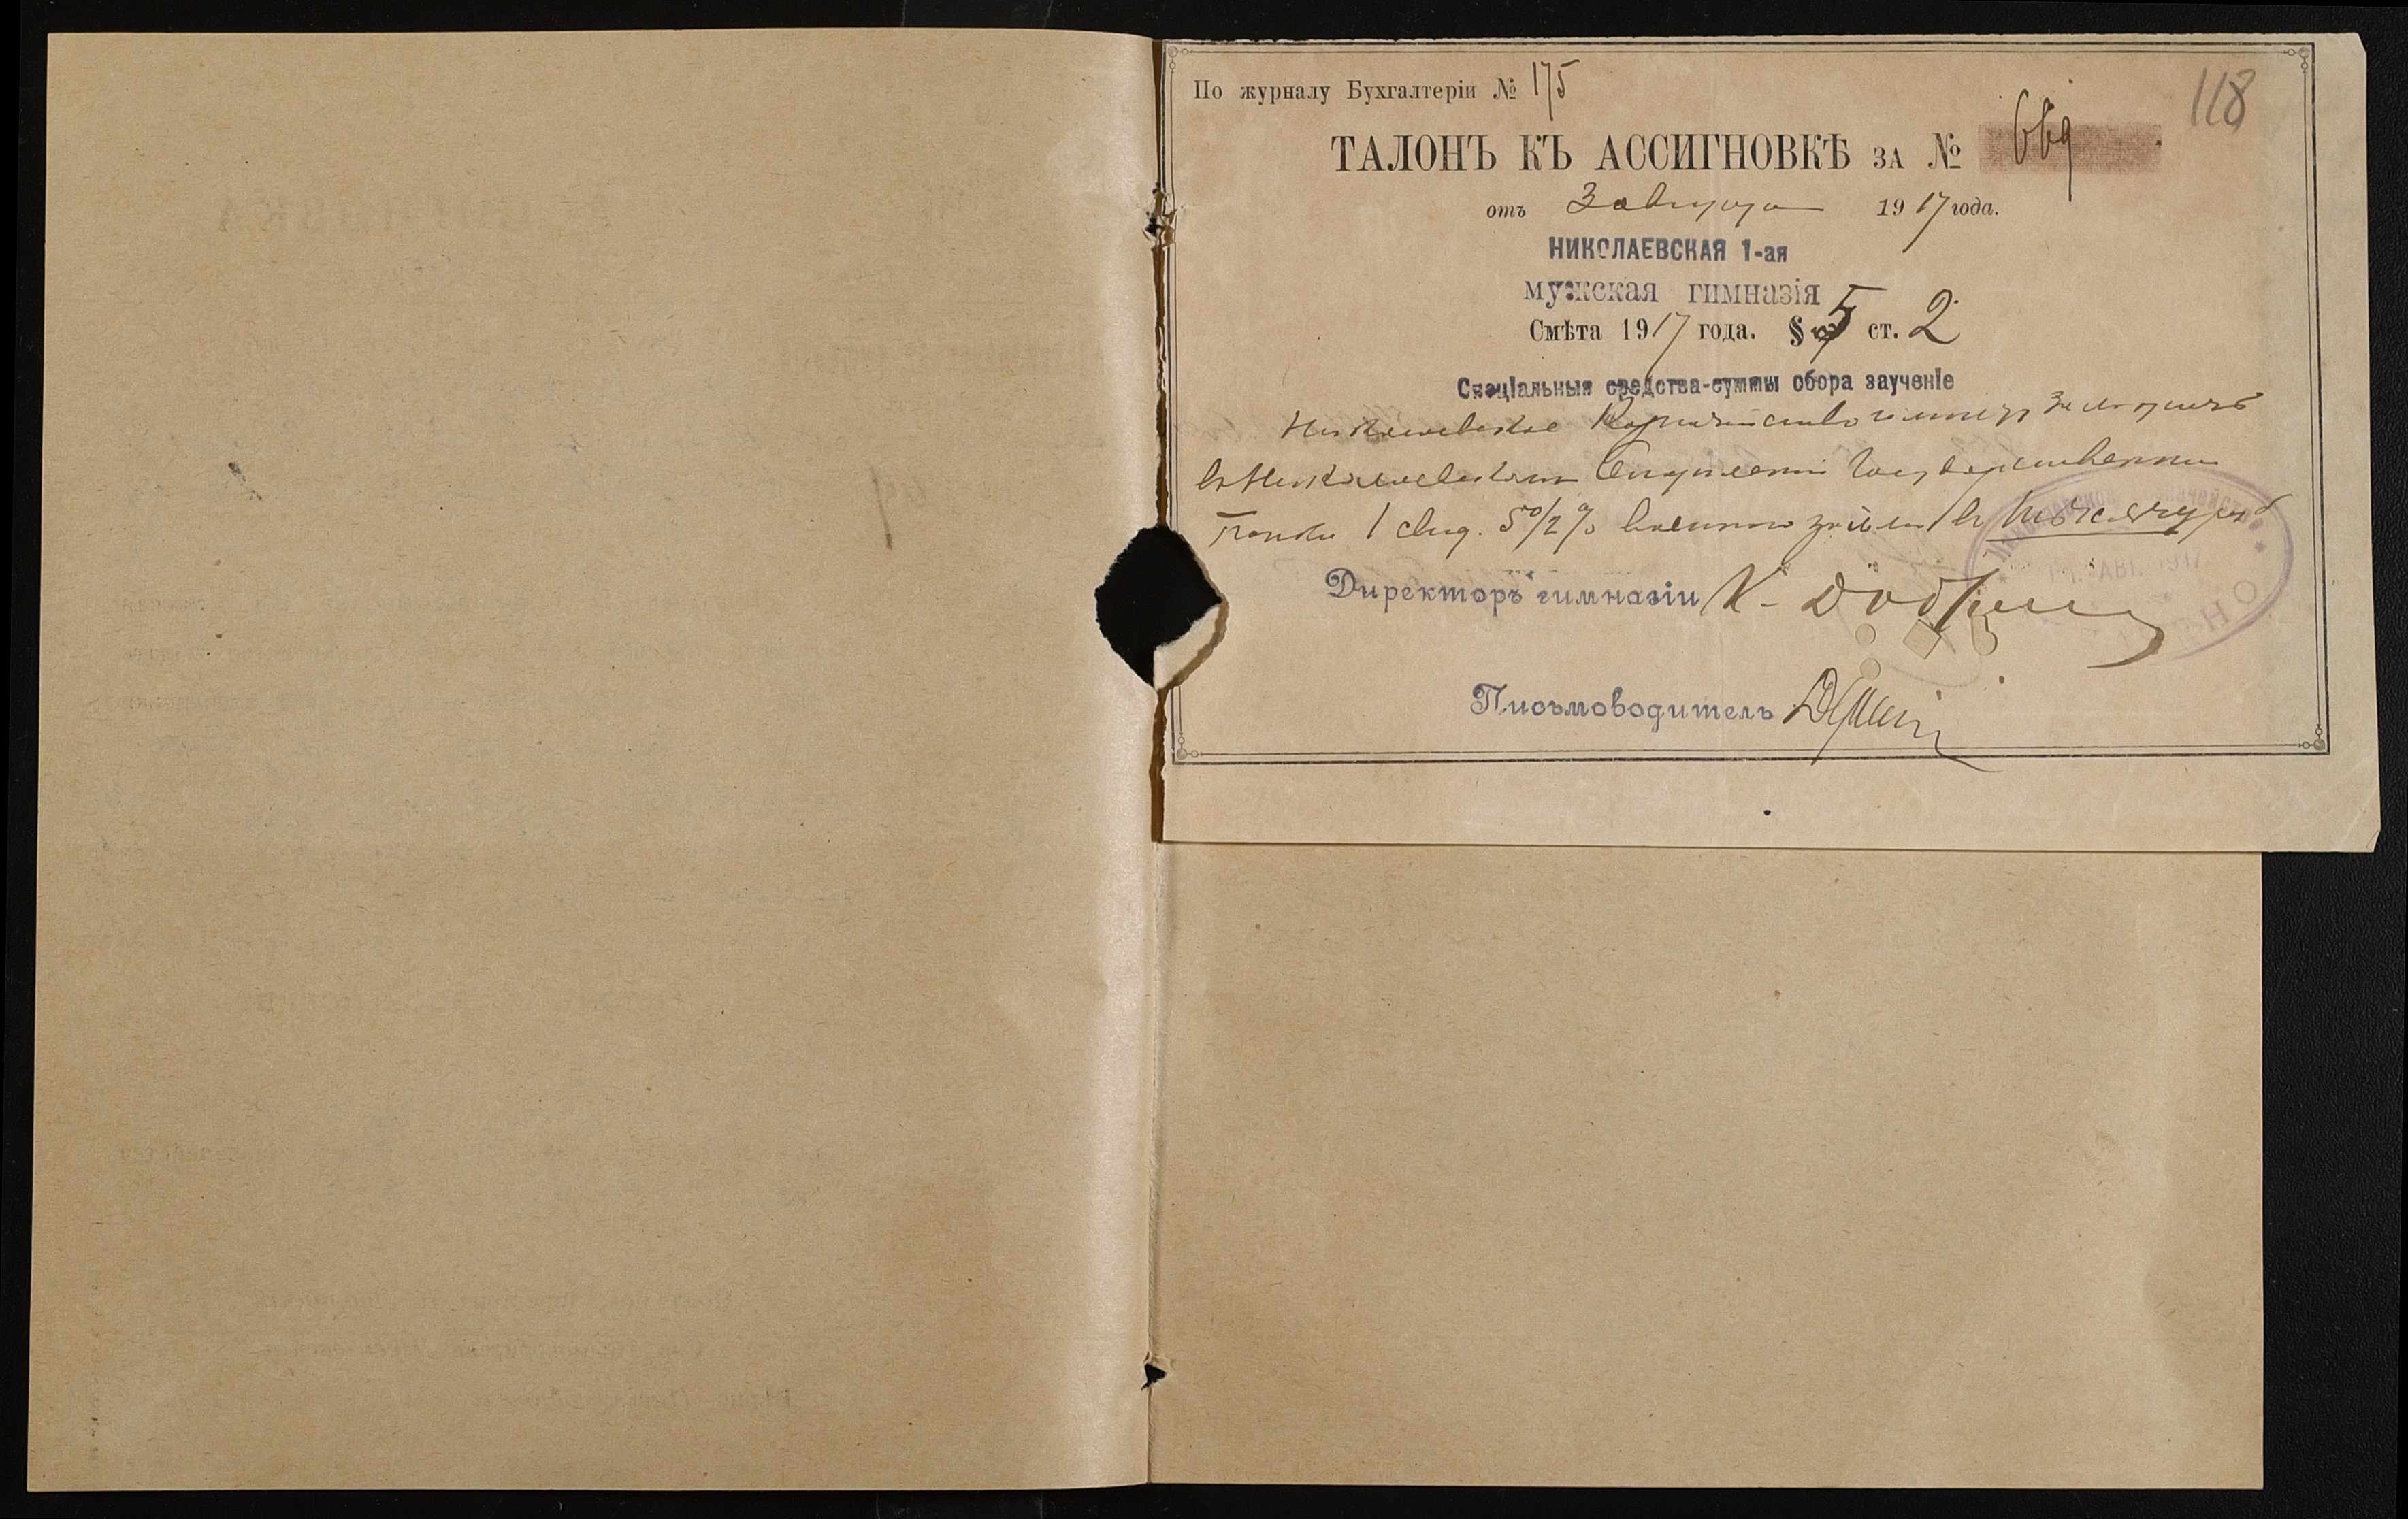 118
По журналу Бухгалтеріи № 175
ТАЛОНЪ КЪ АССИГНОВКѢ ЗА № 669
отъ 3 августа 1917 года.
НИКОЛАЕВСКАЯ 1-ая
мужская гимназія
Смѣта 1917 года. § 5 ст. 2
Спеціальныя средства-суммы сбора заученіе
Николаевское Казначейство
въ Николаевскомъ Отдѣленіи Государственнаго
Банка 1 свид. 5 1/2 % военнаго займа въ тысячу руб
АВГ. 1917
Директоръ гимназіи К.
Письмоводитель